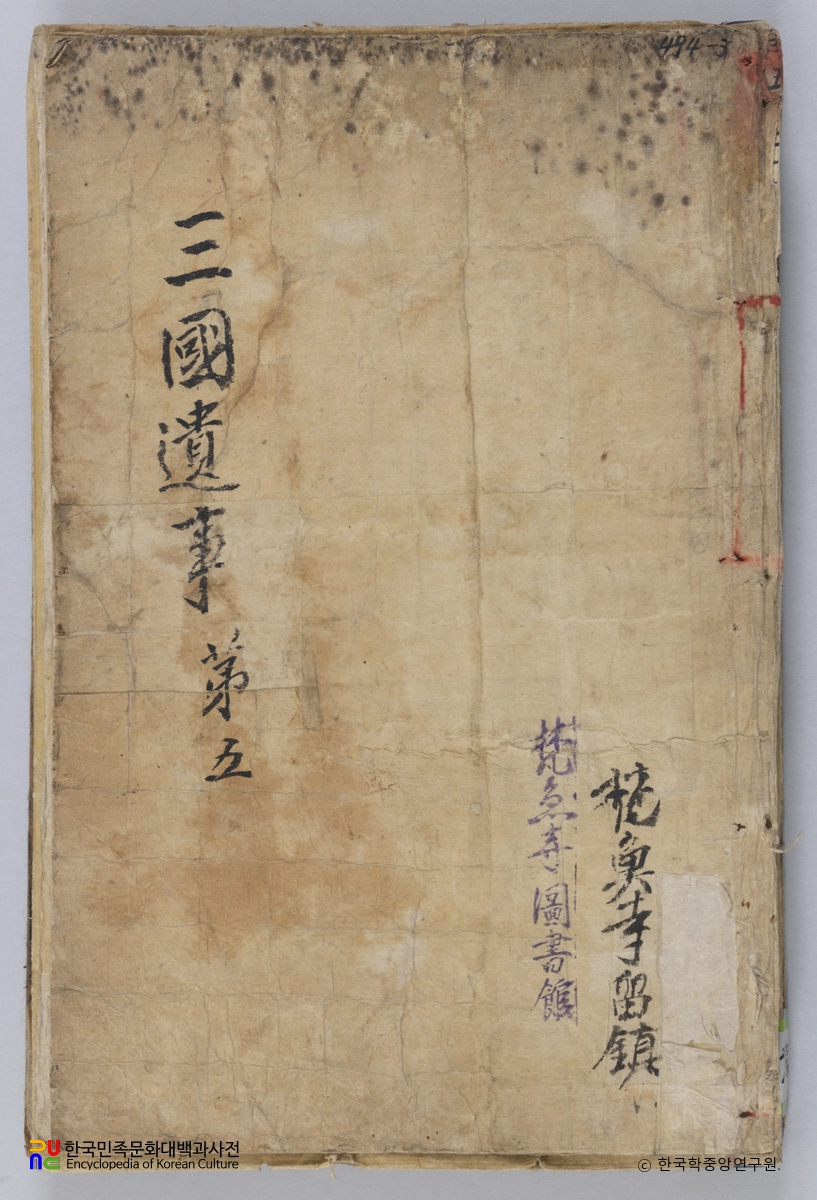 494-3
三國遺事 第五
梵魚寺圖書館
梵魚寺留鎮
한국민족문화대백과사전
Encyclopedia of Korean Culture
© 한국학중앙연구원.